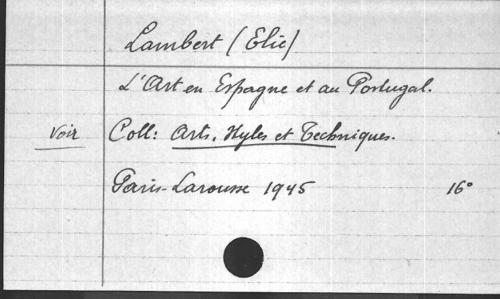 Lambert (Elie)
L'Art en Espagne et au Portugal.
Voir Coll: Arts, Styles et Techniques.
Paris-Larousse 1945 16°